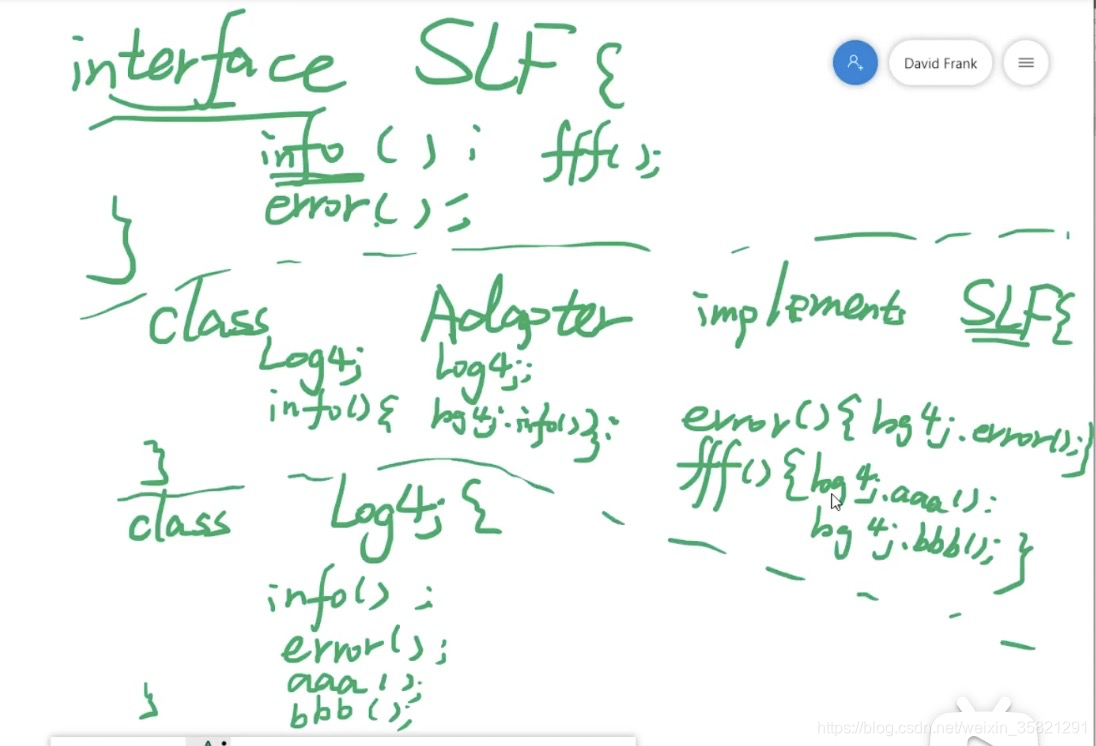 interface SLF {
David Frank
info () ; fff();
error();
}
class Adapter implements SLF{
Log4j log4j;
info(){ log4j.info()}; error(){ log4j.error();}
fff(){log4j.aaa();
log4j.bbb();}
}
class Log4j {
info() ;
error();
aaa();
bbb();
}
https://blog.csdn.net/weixin_35821291